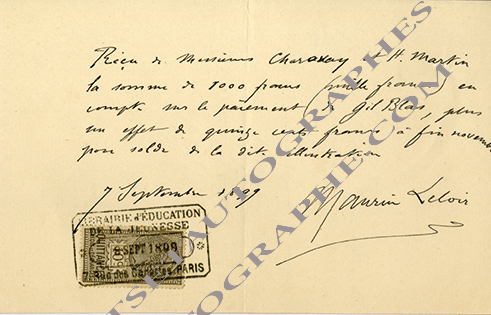 Reçu de Messieurs Charavay et H. Martin
la somme de 1000 francs (mille francs) en
compte sur le paiement de Gil Blas, plus
un effet de quinze cents francs à fin novembre
pour solde de la dite illustration
7 Septembre 1899
Maurice Leloir
LIBRAIRIE d'ÉDUCATION
DE LA JEUNESSE
SEPT 1899
7, Rue des Canettes, PARIS
AUTOGRAPHES
AUTOGRAPHE.COM